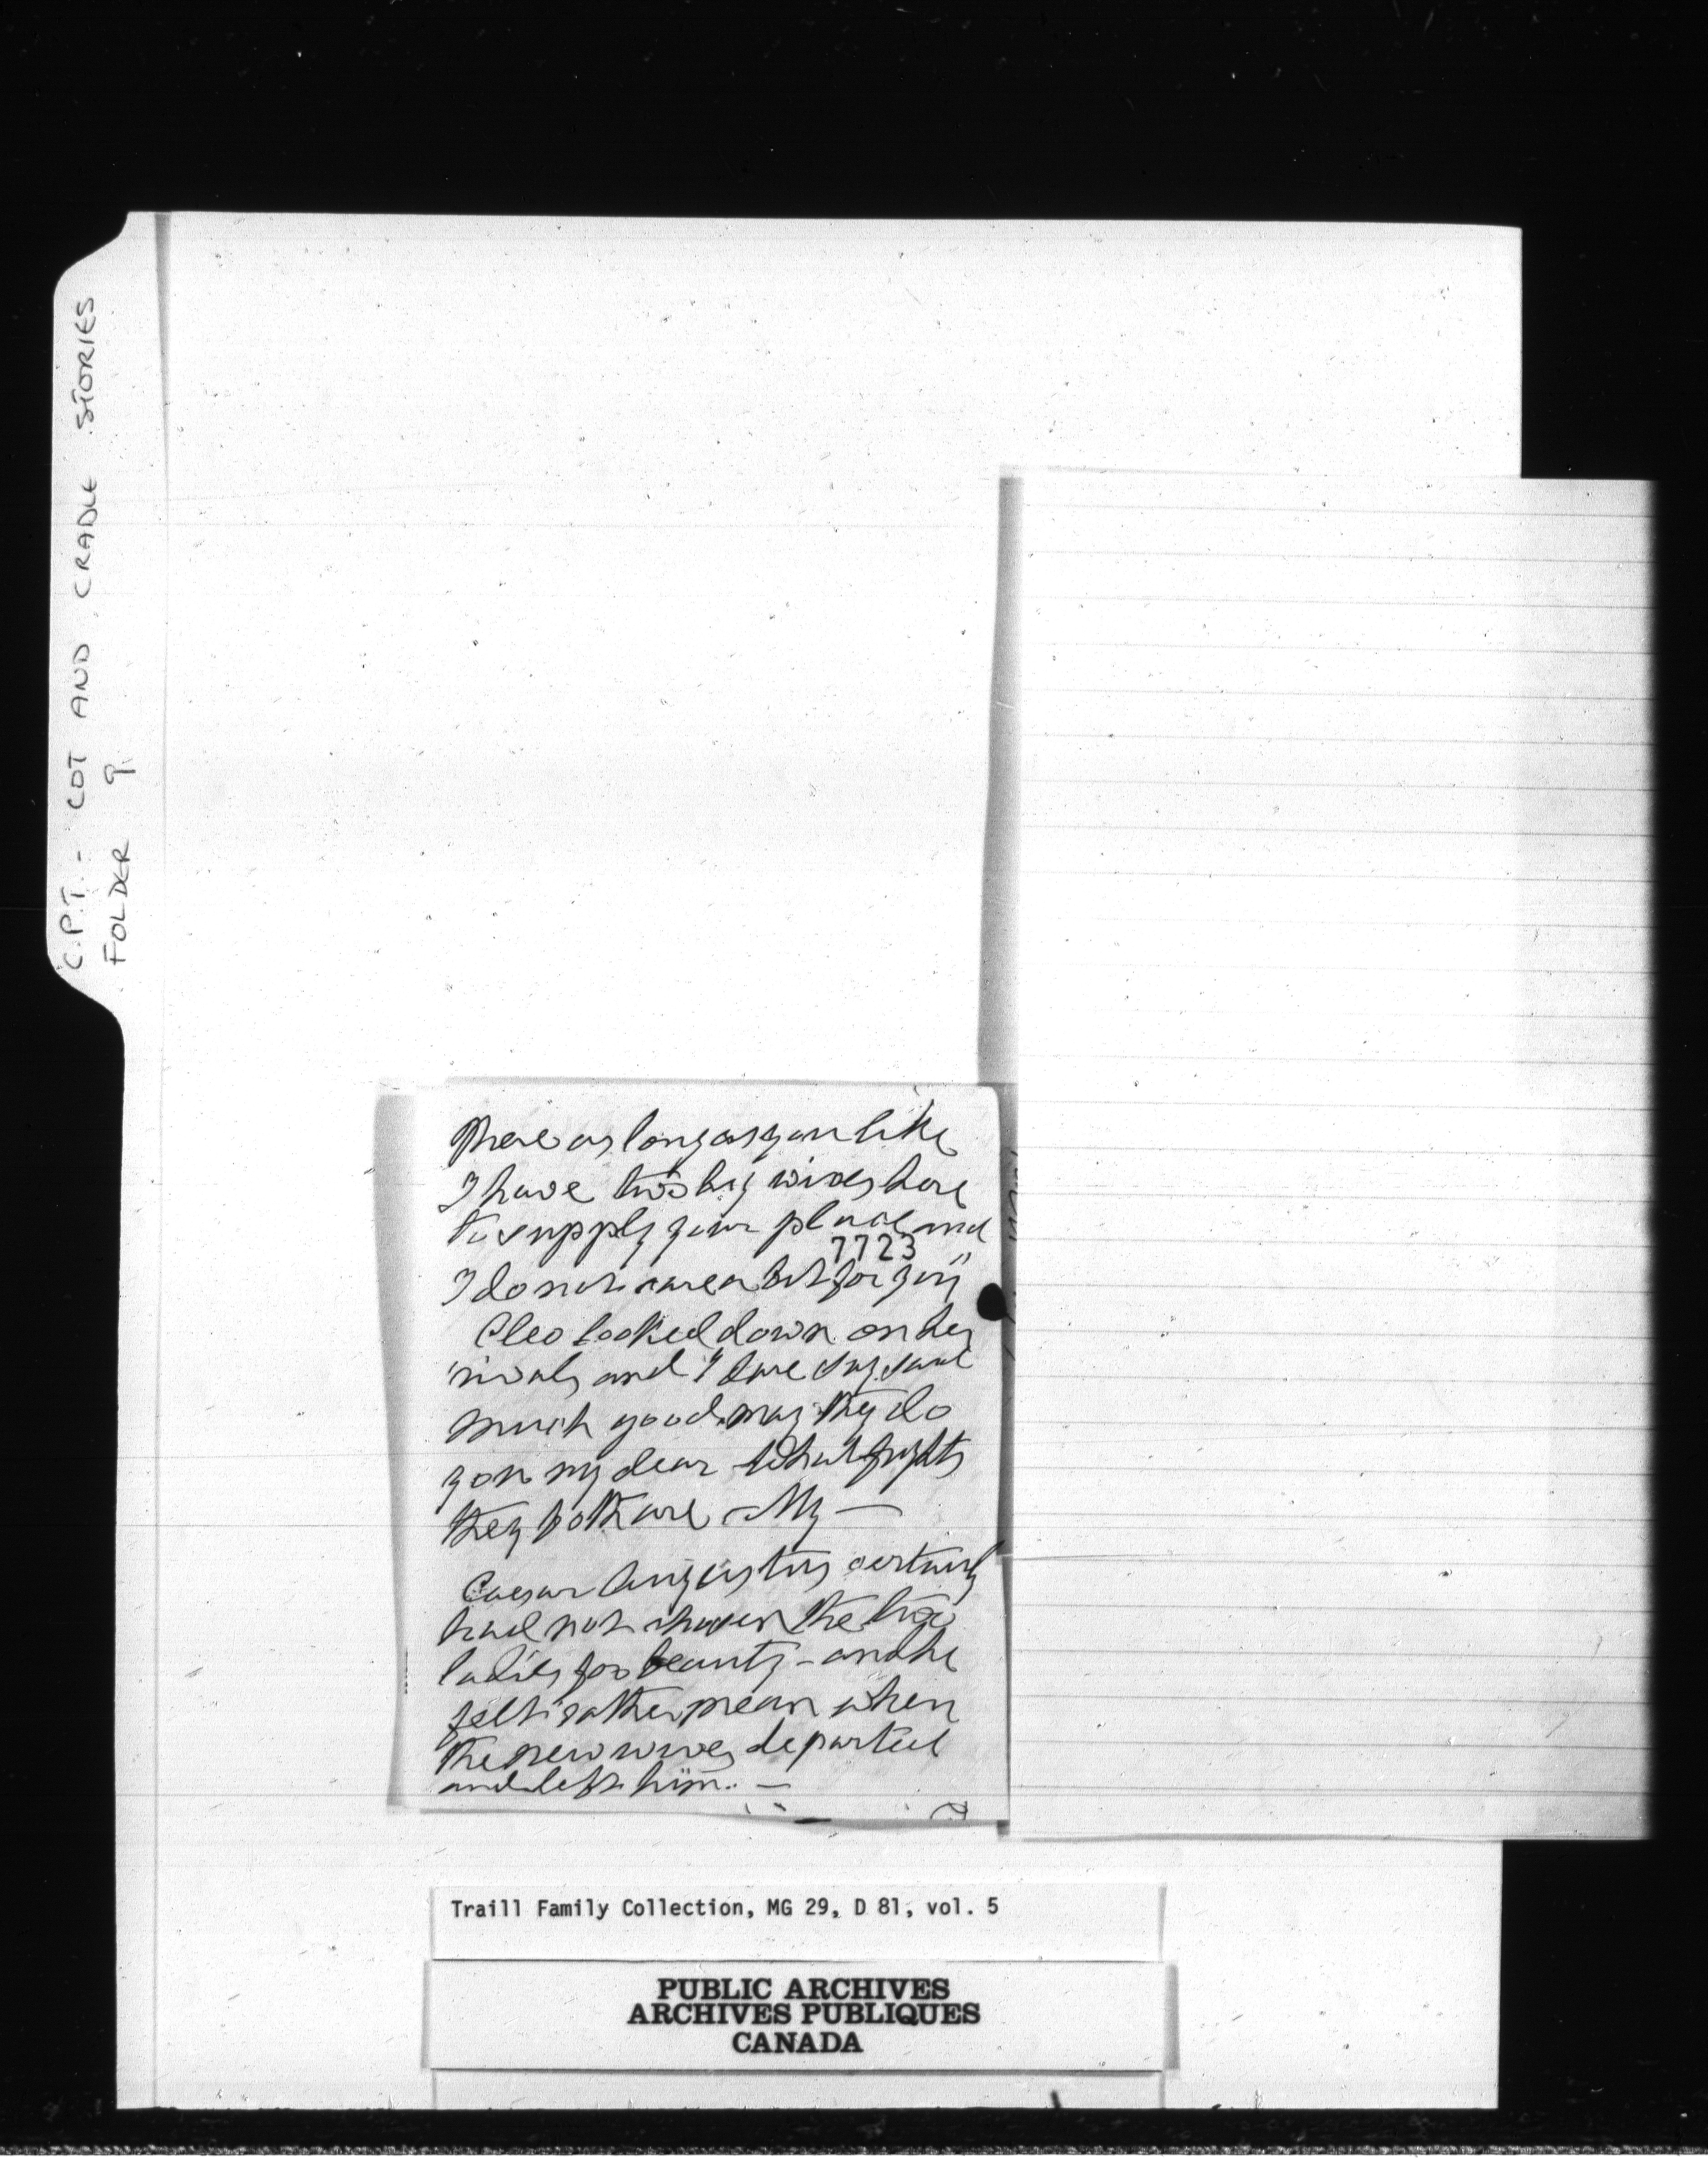 C.P.T. - COT AND CRADLE STORIES
FOLDER 9
there as long as you like
I have two big wives here
to supply your place and
7723
I do not care a bit for you"
Cleo looked down on her
rivals and I dare say said
much good may they do
you my dear what frights
they both are - My —
Caesar Augustus certainly
had not chosen the two
ladies for beauty - and he
felt rather mean when
the new wives departed
and left him. —
Traill Family Collection, MG 29, D 81, vol. 5
PUBLIC ARCHIVES
ARCHIVES PUBLIQUES
CANADA